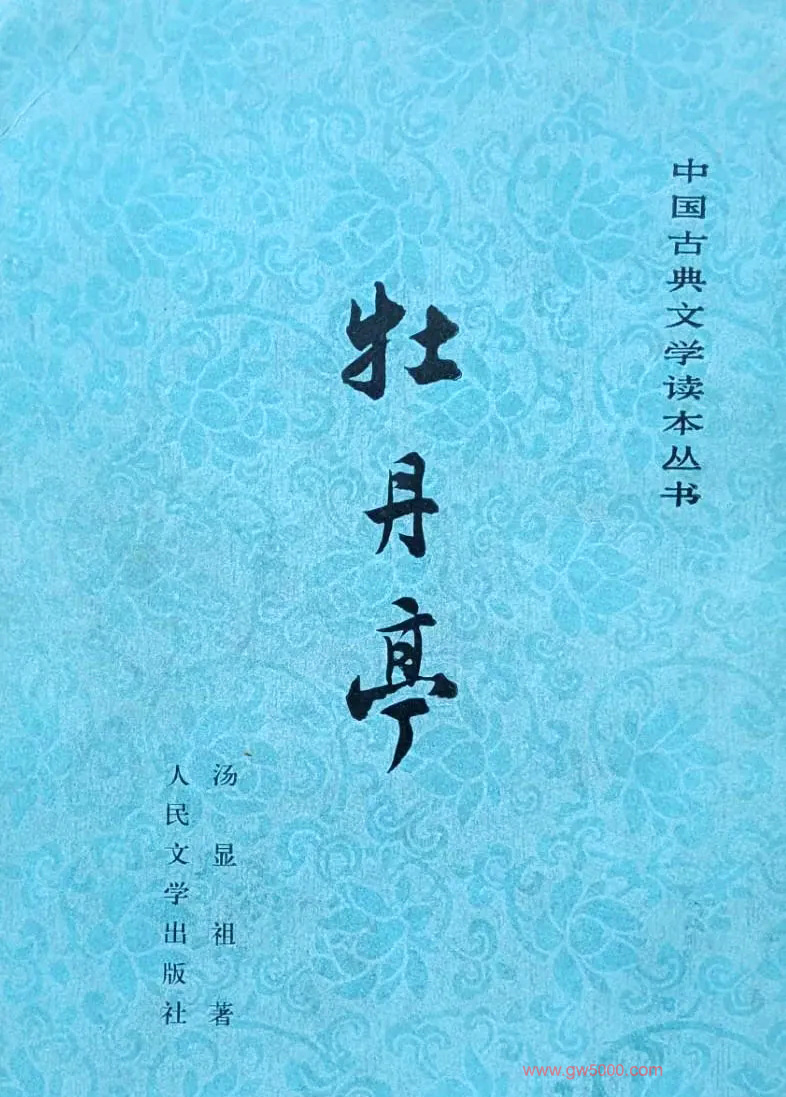 中国古典文学读本丛书
牡丹亭
汤显祖著
人民文学出版社
www.gw5000.com